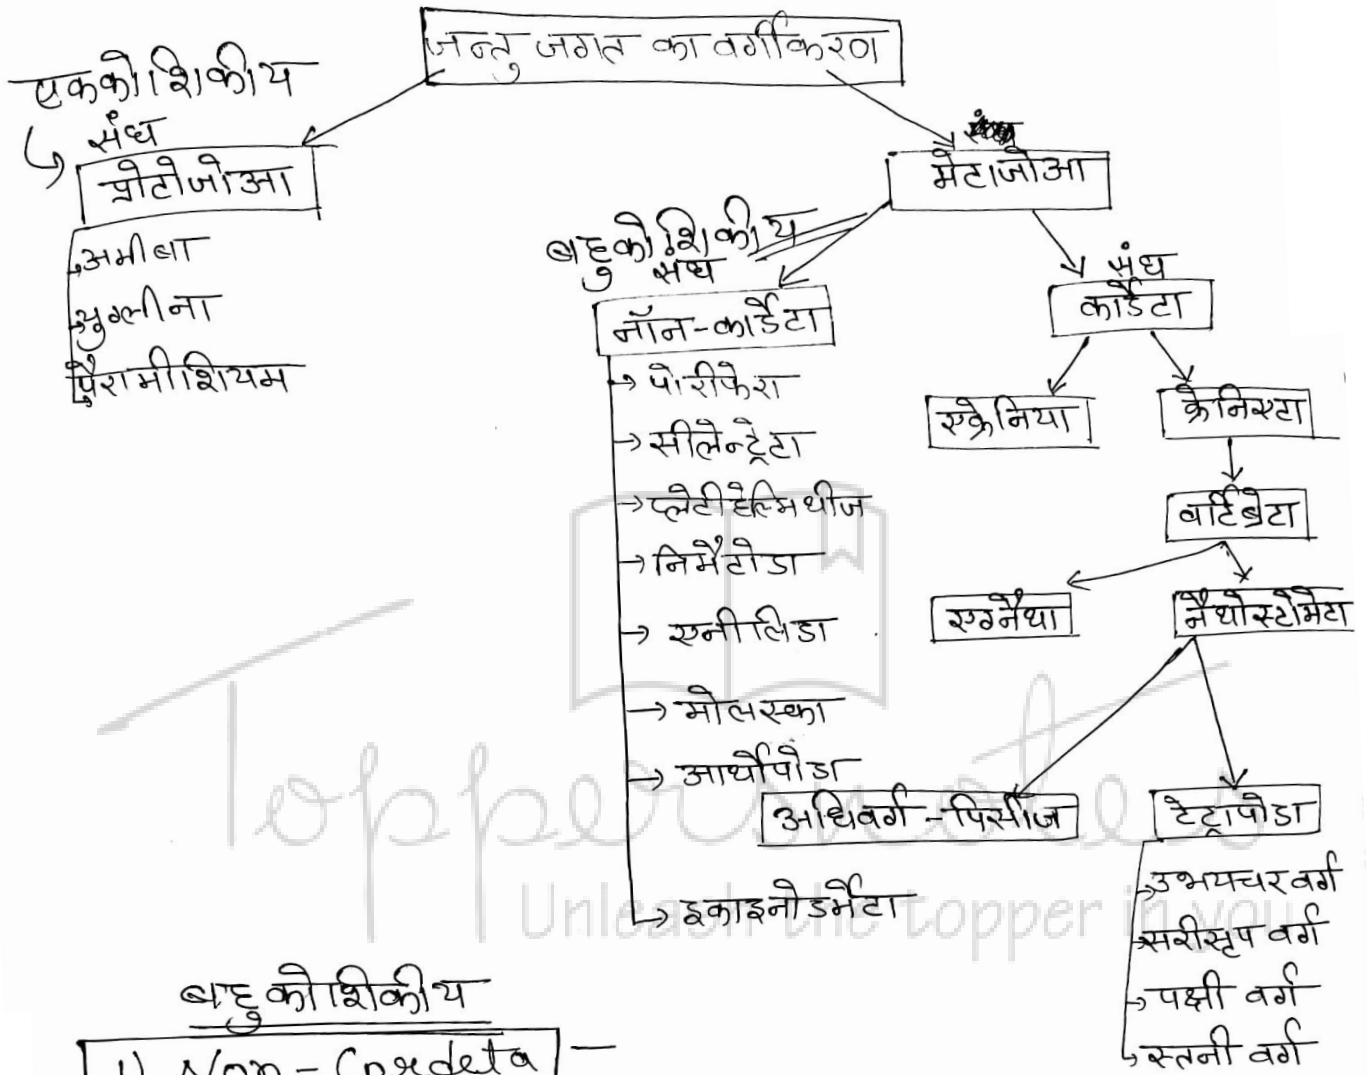 जन्तु जगत का वर्गीकरण
एककोशिकीय
संघ
प्रोटोजोआ
अमीबा
युग्लीना
पैरामीशियम
मेटाजोआ
बहुकोशिकीय
संघ
नॉन-कार्डेटा
→ पोरीफेरा
→ सीलेन्ट्रेटा
→ प्लेटीहेल्मिथीज
→ निमैटोडा
→ एनीलिडा
→ मोलस्का
→ आर्थोपोडा
→ इकाइनोडर्मेटा
संघ
कार्डेटा
एक्रेनिया
क्रेनिएटा
वर्टिब्रेटा
एग्नैथा
नैथोस्टोमेटा
अधिवर्ग - पिसीज
टेट्रापोडा
उभयचर वर्ग
सरीसृप वर्ग
पक्षी वर्ग
स्तनी वर्ग
Toppersnotes
Unleash the topper in you
बहुकोशिकीय
1) Non - Cordeta